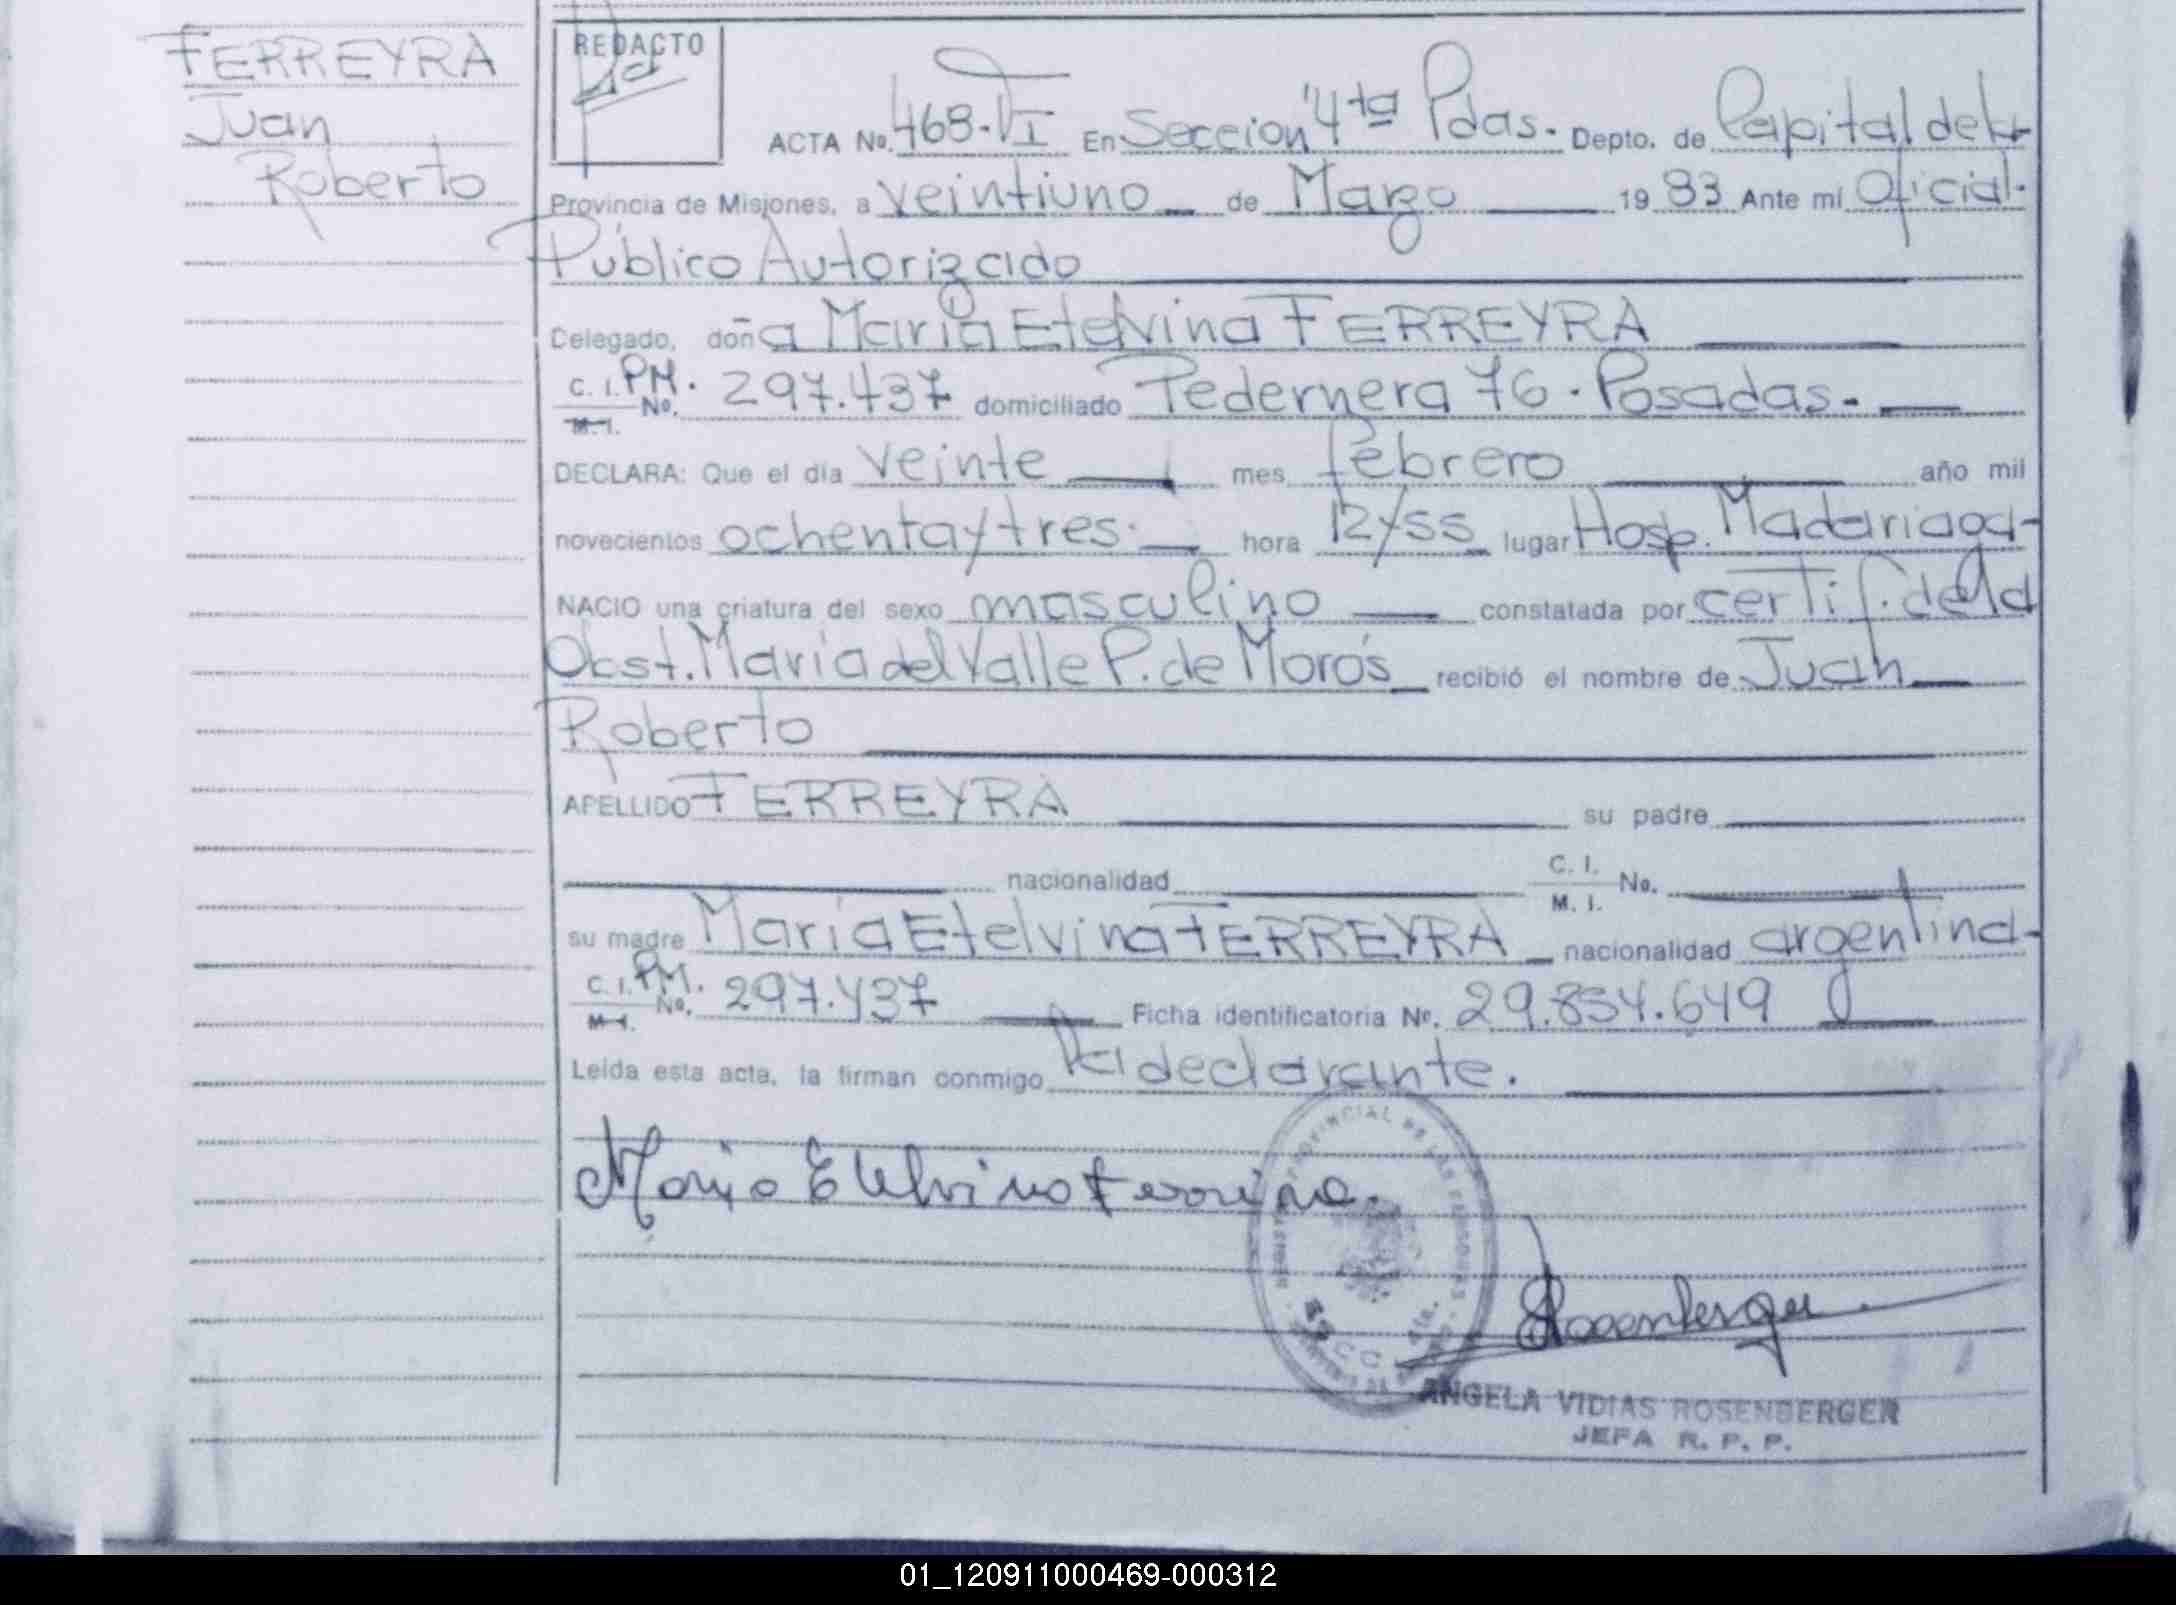 FERREYRA
Juan
Roberto
REDACTO
ACTA No. 468-VI En Seccion "4ta Pdas. Depto. de Capital de la
Provincia de Misiones, a veintiuno de Marzo 1983 Ante mi Oficial.
Público Autorizado
Delegado, doña María Etelvina FERREYRA
C. I. PM. No. 297.437 domiciliado Pedernera 76. Posadas.
M. I.
DECLARA: Que el día veinte mes febrero año mil
novecientos ochenta y tres. hora 12/55 lugar Hosp. Madariaga-
NACIO una criatura del sexo masculino constatada por certif. de la
Obst. María del Valle P. de Morós recibió el nombre de Juan
Roberto
APELLIDO FERREYRA su padre
nacionalidad C. I. No.
M. I.
su madre María Etelvina FERREYRA nacionalidad argentina-
C. I. PM. No. 297.437 Ficha identificatoria No. 29.834.649
M. I.
Leída esta acta, la firman conmigo la declarante.
Maria Etelvina Ferreyra.
PROVINCIAL DE LAS PERSONAS
SECC. 4ta.
Rosenberger
ANGELA VIDIAS ROSENBERGER
JEFA R. P. P.
01_120911000469-000312